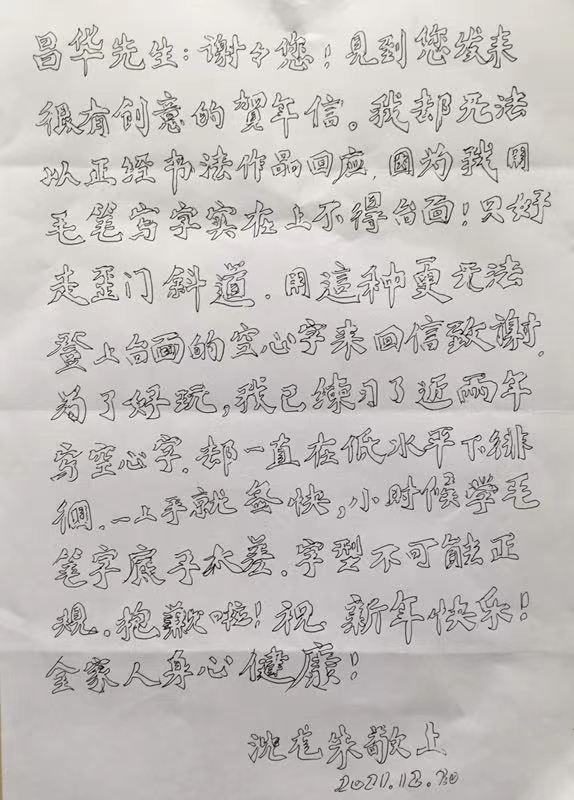 昌华先生：谢々您！见到您发来
很有创意的賀年信。我却无法
以正经书法作品回应，因为我用
毛笔写字实在上不得台面！只好
走歪门斜道，用這种更无法
登上台面的空心字来回信致谢。
为了好玩，我已练习了近两年
写空心字，却一直在低水平下徘
徊，一上手就签快，小时候学毛
笔字底子太差，字型不可能正
規，抱歉啦！祝 新年快乐！
全家人身心健康！
沈龙朱敬上
2021.12.30